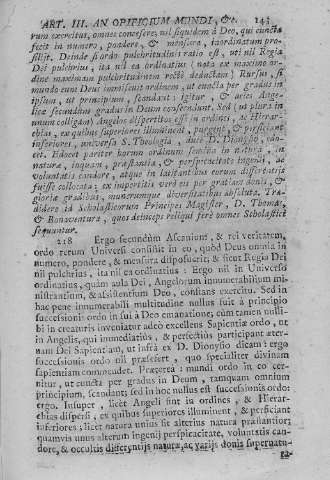 ART. III. AN OPIFICIUM MUNDI, &c. 143
rum exercitus, omnes consefere; nil siquidem à Deo, qui cuncta
fecit in numero, pondere, & mensura, inordinatum pro-
siliit. Deinde si ordo pulchritudinis ratio est, uti nil Regia
Dei pulchrius, ita nil ea ordinatius (nota ex maximo or-
dine maximam pulchritudinem rectè deductam) Rursus, si
mundo eum Deus immiscuit ordinem, ut cuncta per gradus in
ipsum, ut principium, scandant; igitur, & acies Ange-
licæ secundùm gradus in Deum conscendunt. Sed (ut plura in
unum colligam) Angelos dispertitos esse in ordines, ac Hierar-
chias, ex quibus superiores illuminent, purgent, & perficiant
inferiores, universa S. Theologia, duce D. Dionysio edo-
cet. Educet pariter horum ordinum
naturæ, inquam, præstantia, & perspicacitate ingenii, ac
voluntatis candore, atque in
fuisse collocata; ex imperitis verò eis per gratiam donis, &
gloriæ gradibus, munerumque diversitatibus absoluta. Tra-
didere id Scholasticorum Principes Magister, D. Thomas,
& Bonaventura, quos deinceps reliqui ferè omnes Scholastici
sequuntur.
218 Ergo secundùm Ascanium, & rei veritatem,
ordo rerum Universi consistit in eo, quòd Deus omnia in
numero, pondere, & mensura disposuerit; & sicut Regia Dei
nil pulchrius, ita nil ea ordinatius: Ergo nil in Universo
ordinatius, quàm aula Dei, Angelorum innumerabilium mi-
nistrantium, & assistentium Deo, constans exercitu. Sed in
hac penè innumerabili multitudine nullus fuit à principio
successionis ordo in sui à Deo emanatione; cùm tamen nulli-
bi in creaturis inveniatur adeò excellens Sapientiæ ordo, ut
in Angelis, qui immediatiùs, & perfectiùs participant æter-
nam Dei Sapientiam, ut infrà ex D. Dionysio dicam: ergo
successionis ordo nil præsefert, quo specialiter divinam
sapientiam commendet. Præterea: mundi ordo in eo cer-
nitur, ut cuncta per gradus in Deum, tamquam omnium
principium, scandant; sed in hoc nullus est successionis ordo:
ergo. Insuper, licèt Angeli sint in ordines, & Hierar-
chias dispersi, ex quibus superiores illuminent, & perficiant
inferiores; licet natura unius sit alterius natura præstantior;
quamvis unus alterum ingenij perspicacitate, voluntatis can-
dore, & occultis differentijs naturæ, ac varijs donis supernatu-
ga-